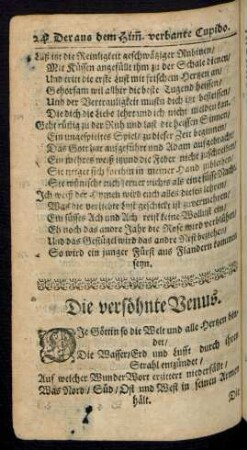 24 Der aus dem Him̃. verbante Cupido.
Laß itzt die Reinligkeit geschwätziger Rubinen/
Mit Küssen angefüllt ihm zu der Schale dienen/
Und trin die erste Lust mit frischem Hertzen an/
Gehorsam wil alhier die beste Tugend heissen/
Und der Vertrauligkeit mustu dich itzt befleissen/
Die dich die Liebe lehrt und ich nicht melden kan.
Geht rüstig zu der Ruh und last die heissen Sinnen/
Ein ungespieltes Spiel zu dieser Zeit beginnen/
Das Gott hat aufgeführt und Adam aufgebracht/
Ein mehres weiß itzund die Feder nicht
Sie
Sie wünschet euch nichts als eine
Ich weiß der euch alles dieses lehren/
Was die verliebte Lust geschickt ist zu vermehren/
Ein süsses Ach und Ach reist keine Wollust ein/
Eh noch das andre Jahr die Rose wird verblühen/
Und das Geflügel wird das andre Nest beziehen/
So wird ein junger Fürst aus Flandern kommen
seyn.
Die versöhnte Venus.
Die Göttin so die Welt und alle Hertzen bin-
det/
Die Wasser/ Erd und Lufft durch ihren
Strahl entzündet/
Auf welcher Wunder Wort erzittert niederfällt/
Was Nord/ Süd/ Ost und West in seinen Armen
hält.
Die